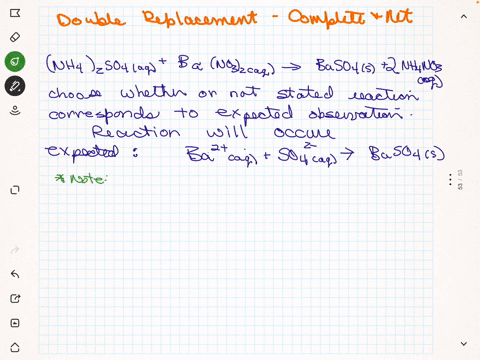 Double Replacement - Complete & Net
(NH4)2SO4(aq) + Ba(NO3)2(aq) → BaSO4(s) + 2NH4NO3(aq)
choose whether or not stated reaction
corresponds to expected observation.
Reaction will occure
expected: Ba2+(aq) + SO42-(aq) → BaSO4(s)
*Note: